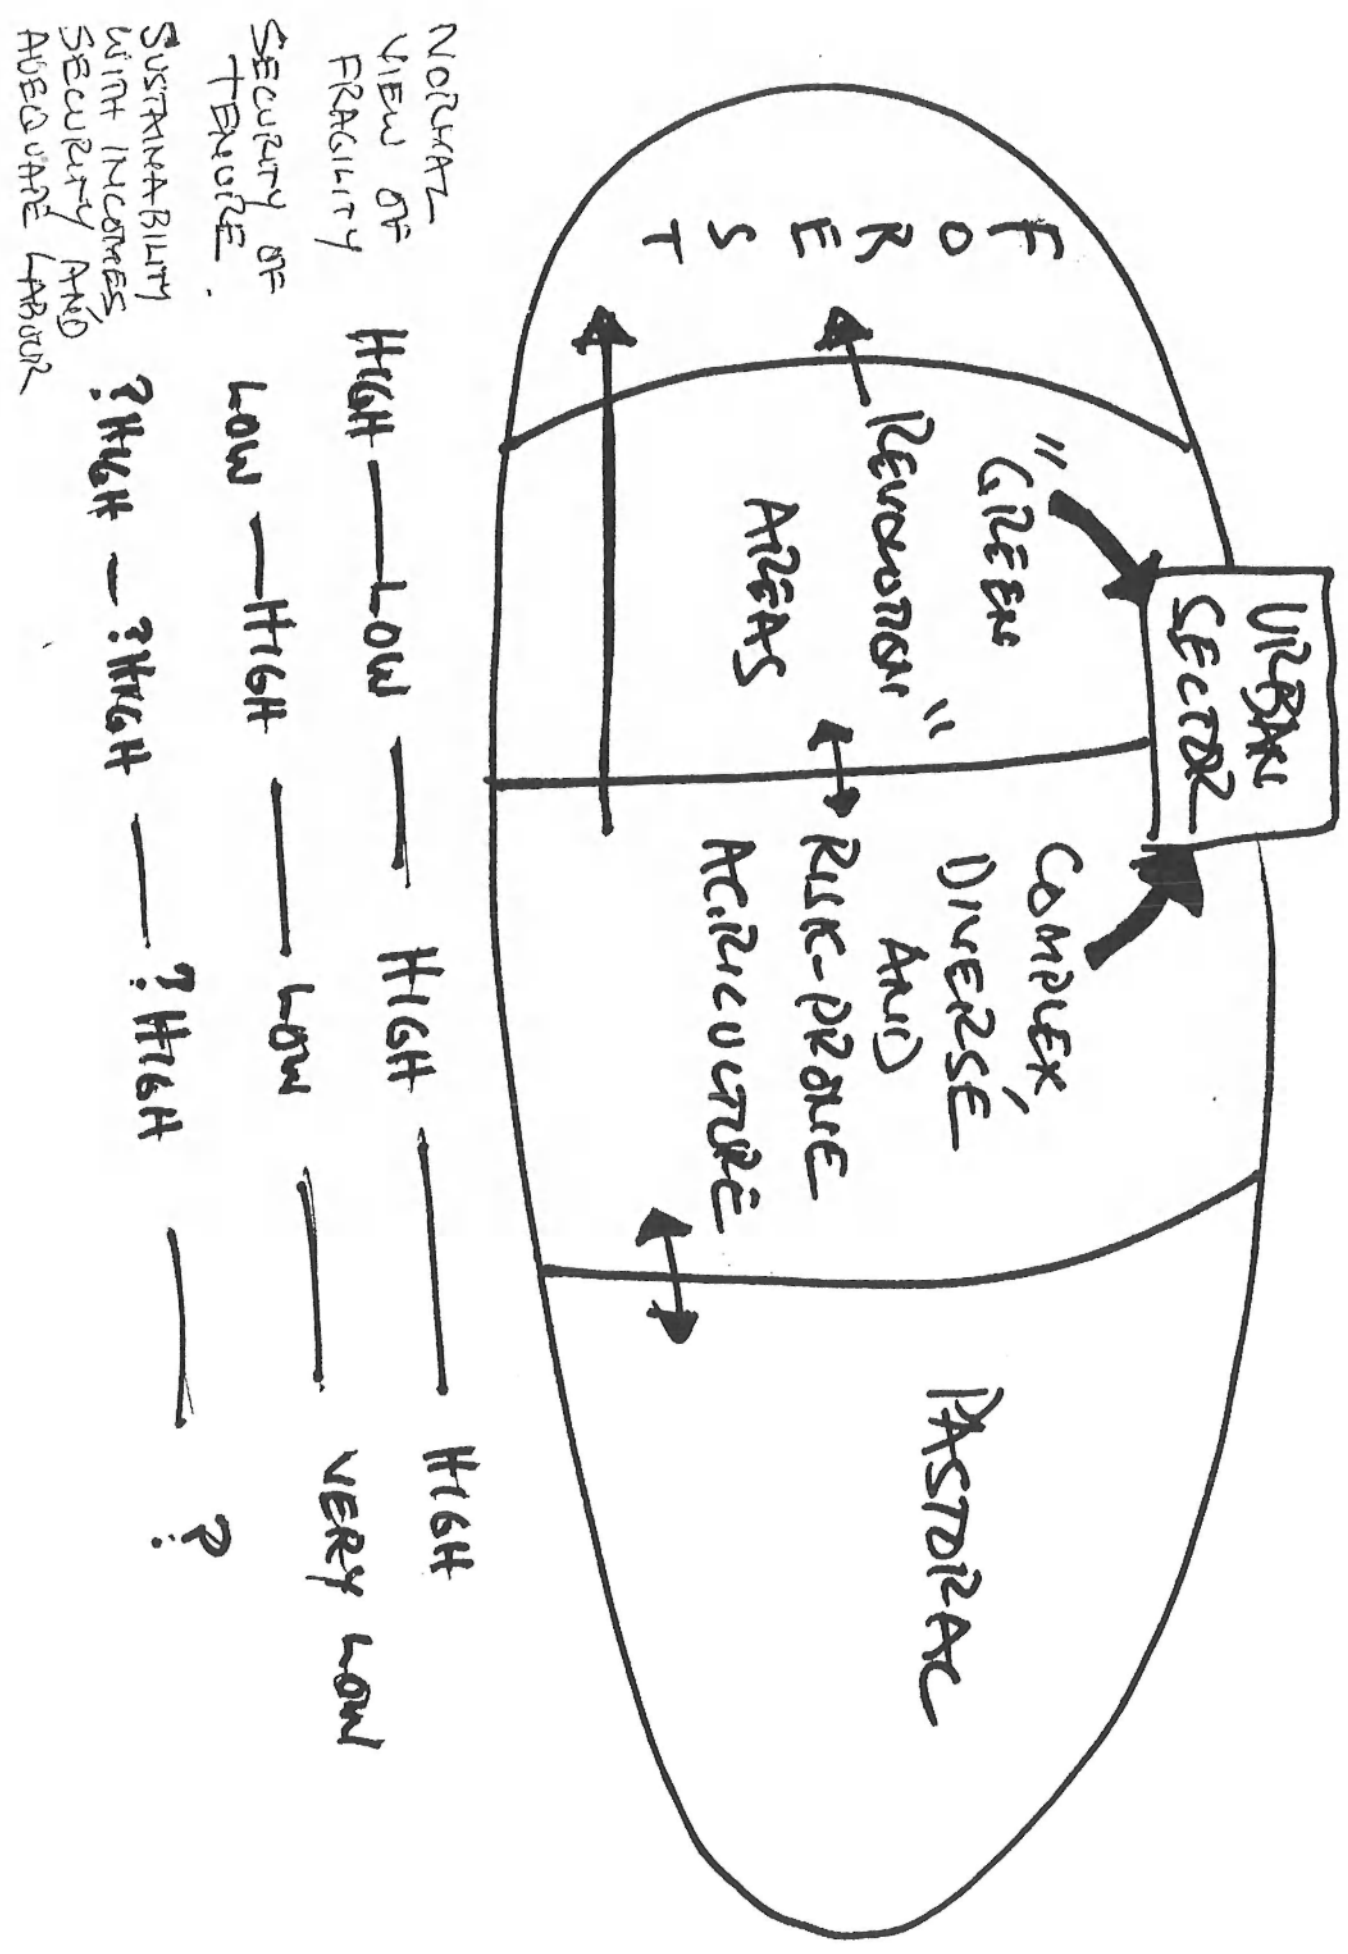 URBAN
SECTOR
F
O
R
E
S
T
"GREEN
REVOLUTION"
AREAS
COMPLEX,
DIVERSE
AND
RISK-PRONE
AGRICULTURE
PASTORAL
NORMAL
VIEW OF
FRAGILITY
HIGH — LOW — HIGH — HIGH
SECURITY OF
TENURE.
LOW — HIGH — LOW — VERY LOW
SUSTAINABILITY
WITH INCOMES
SECURITY AND
ADEQUATE LABOUR
?HIGH — ?HIGH — ?HIGH — ?